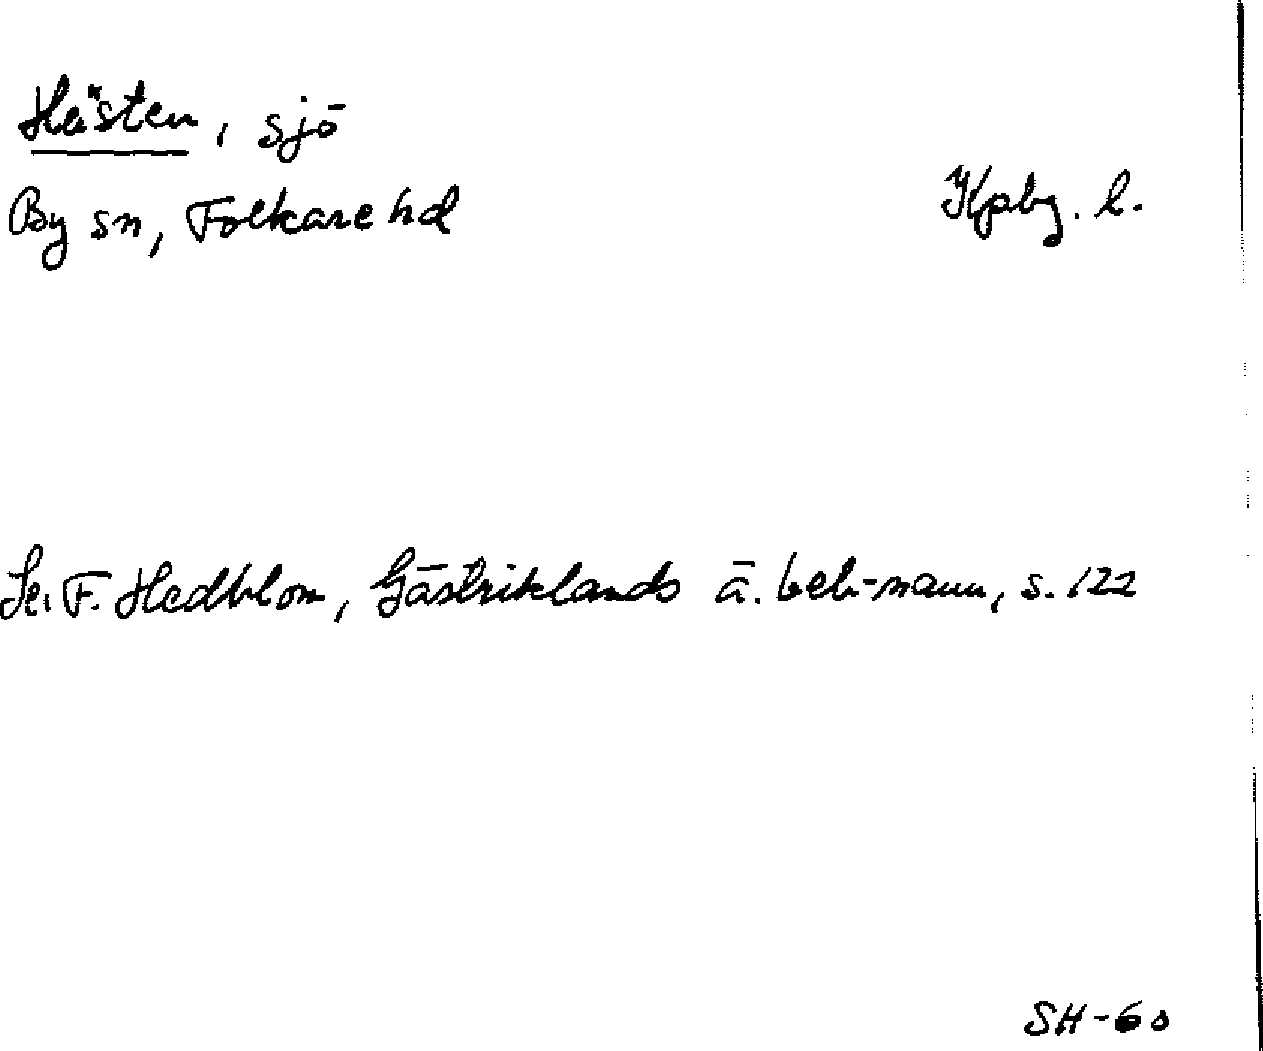 Hästen, sjö
By sn, Folkare hd
Kpbg. l.
Se. F. Hedblom, Gästriklands ä. beb-namn, s. 122
SH-60